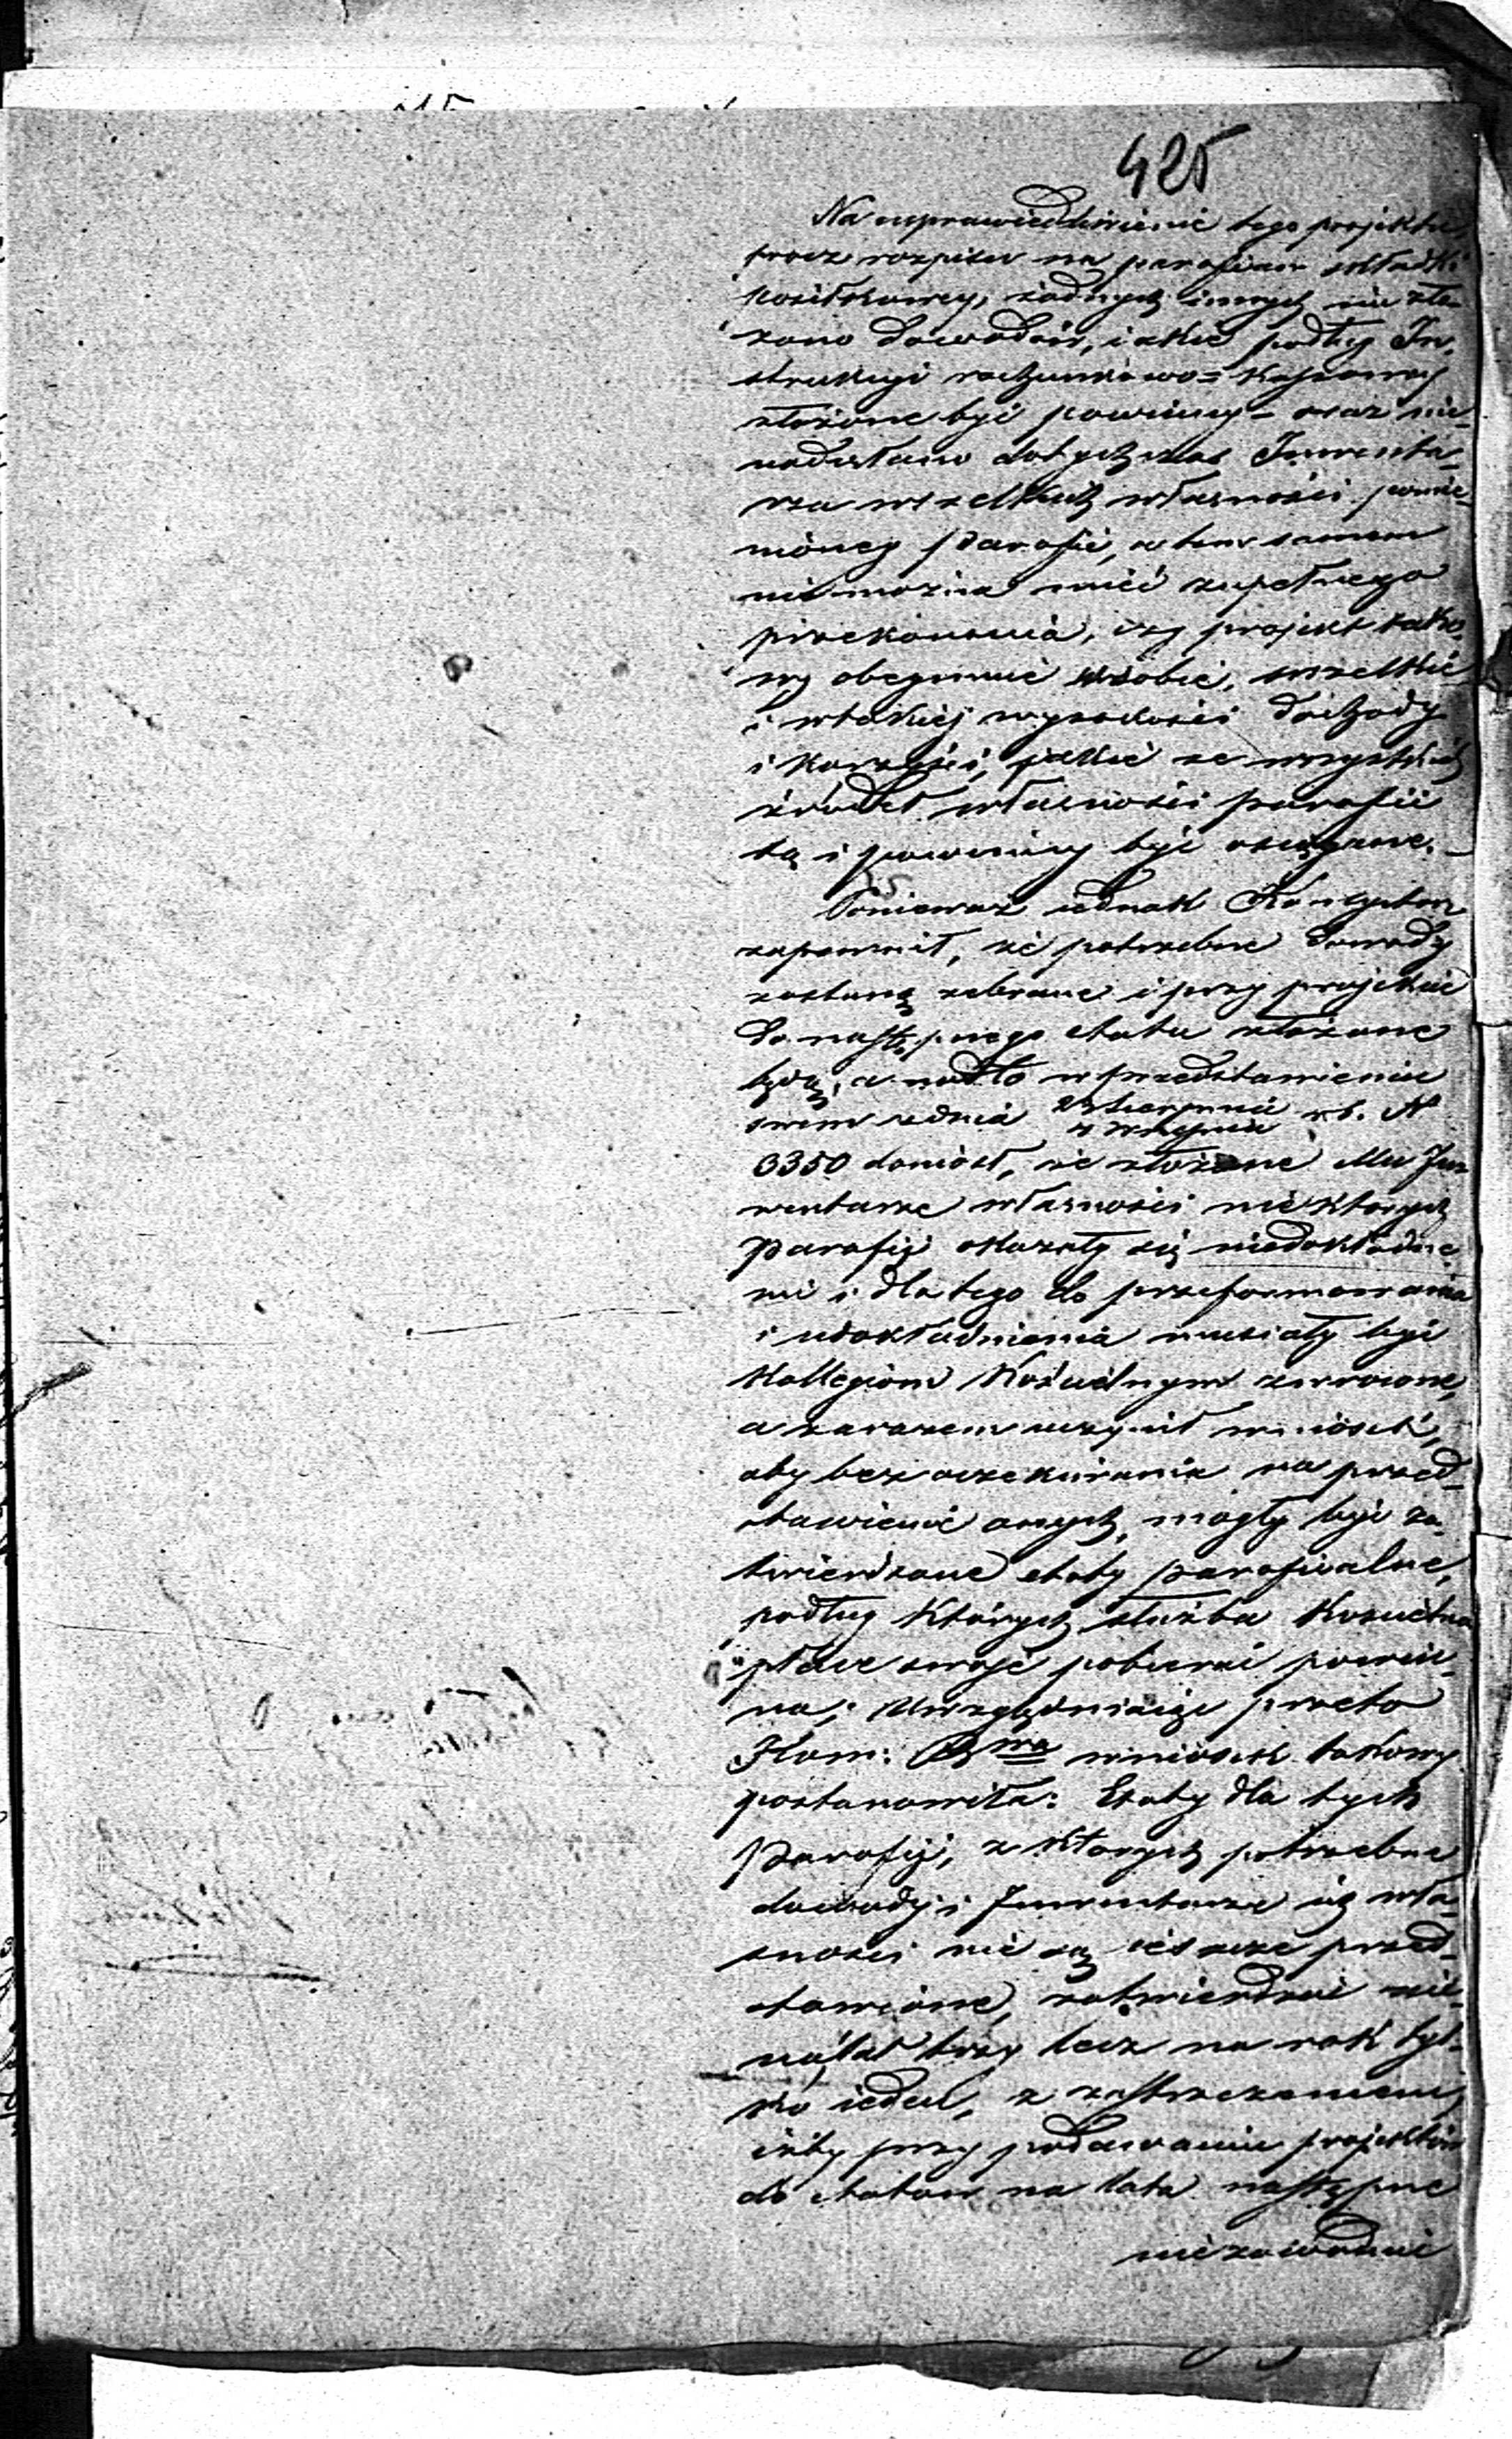 425
Na usprawiedliwienie tego projektu,
prócz rozpisu na parafian składki
kościelney, żadnych innych nie zło-
żono dowodów, iakie podług In-
strukcyi rachunkowo=kassowey
złożone być powinny – oraz nie
nadesłano dotychczas Inwenta-
rza wszelkich własności pomie-
nioney Parafii, a tem samem
nie można mieć zupełnego
przekonania, czy projekt tako-
wy obeymuie w sobie, wszelkie
i w takiej wysokości dochody
i korzyści, jakie ze wszystkich
źródeł własności parafii
są i powinny być osiągane. –
Ponieważ iednak Konsystorz
zapewnił, że potrzebne dowody
zostaną zebrane i przy projekcie
do następnego etatu złożone
będą, a nadto w przedstawieniu
swem z dnia 23 Sierpnia / 4 Września r. b. N
3350 doniósł, że złożone Mu In-
wentarze własności niektórych
Parafij okazały się niedokładne-
mi i dla tego do przeformowania
i udokładnienia musiały być
Kollegiom Kościelnym zwrócone,
a zarazem uczynił wniosek,
aby bez oczekiwania na przed-
stawienie onych, mogły być za-
twierdzane etaty parafialne,
podług których służba Kościelna
płace swoje pobierać powin-
na; Uwzględniając przeto
Kom: Rzwa wniosek takowy
postanowiła: Etaty dla tych
Parafij, z których potrzebne
dowody i Inwentarze ich wła-
sności nie są ieszcze przed-
stawione, zatwierdzać nie
na lat trzy lecz na rok tyl-
ko ieden, z zastrzeżeniem,
iżby przy podawaniu projektów
do etatów na lata następne
niezawodnie